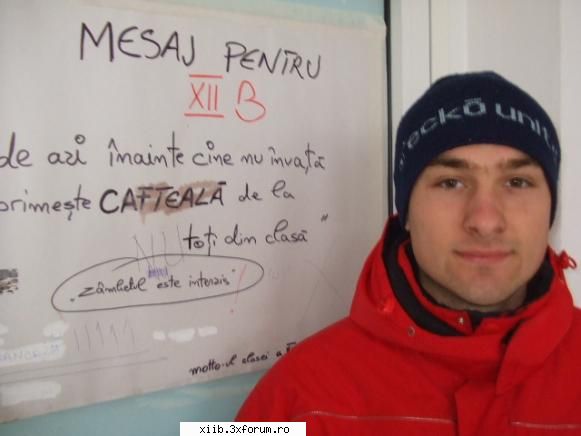 MESAJ PENTRU
XII B
de azi înainte cine nu învață
primește CAFTEALĂ de la
toți din clasă"
NU
"Zâmbetul este interzis"!
motto-ul clasei a
xiib.3xforum.ro